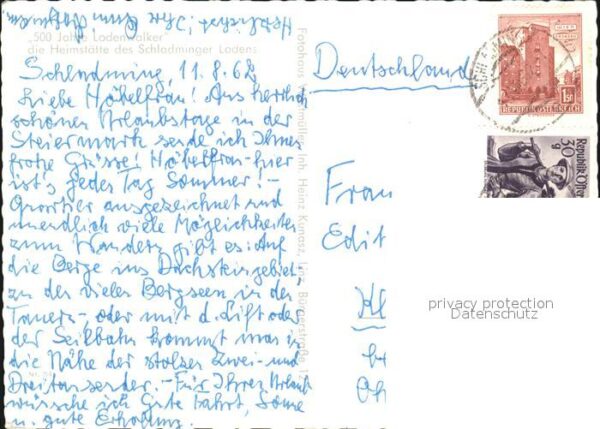 „500 Jahre Lodenwalker"
die Heimstätte des Schladminger Lodens
Schladming, 11.8.62
Liebe Höbelfrau! Aus herrlich
schönen Urlaubstage in der
Steiermark sende ich Ihnen
frohe Grüsse! Höbelfrau - hier
ist's jeden Tag Sommer! -
Quartier ausgezeichnet und
unendlich viele Möglichkeiten
zum Wandern gibt es: Auf
die Berge ins Dachsteingebiet,
zu den vielen Bergseen in den
Tauern - oder mit d. Lift oder
der Seilbahn kommt man in
die Nähe der stolzen Zwei- und
Dreitausender. - Für Ihren Urlaub
wünsche ich Gute Fahrt, Sonne
u. gute Erholung.
Herzlichst, Ihre
Fotohaus
Inh. Heinz Kunasz, Linz, Bürgerstraße
Deutschland
Frau
Edit
Kl
privacy protection
Datenschutz
1.50
REPUBLIK ÖSTERREICH
30
g
Republik Öster